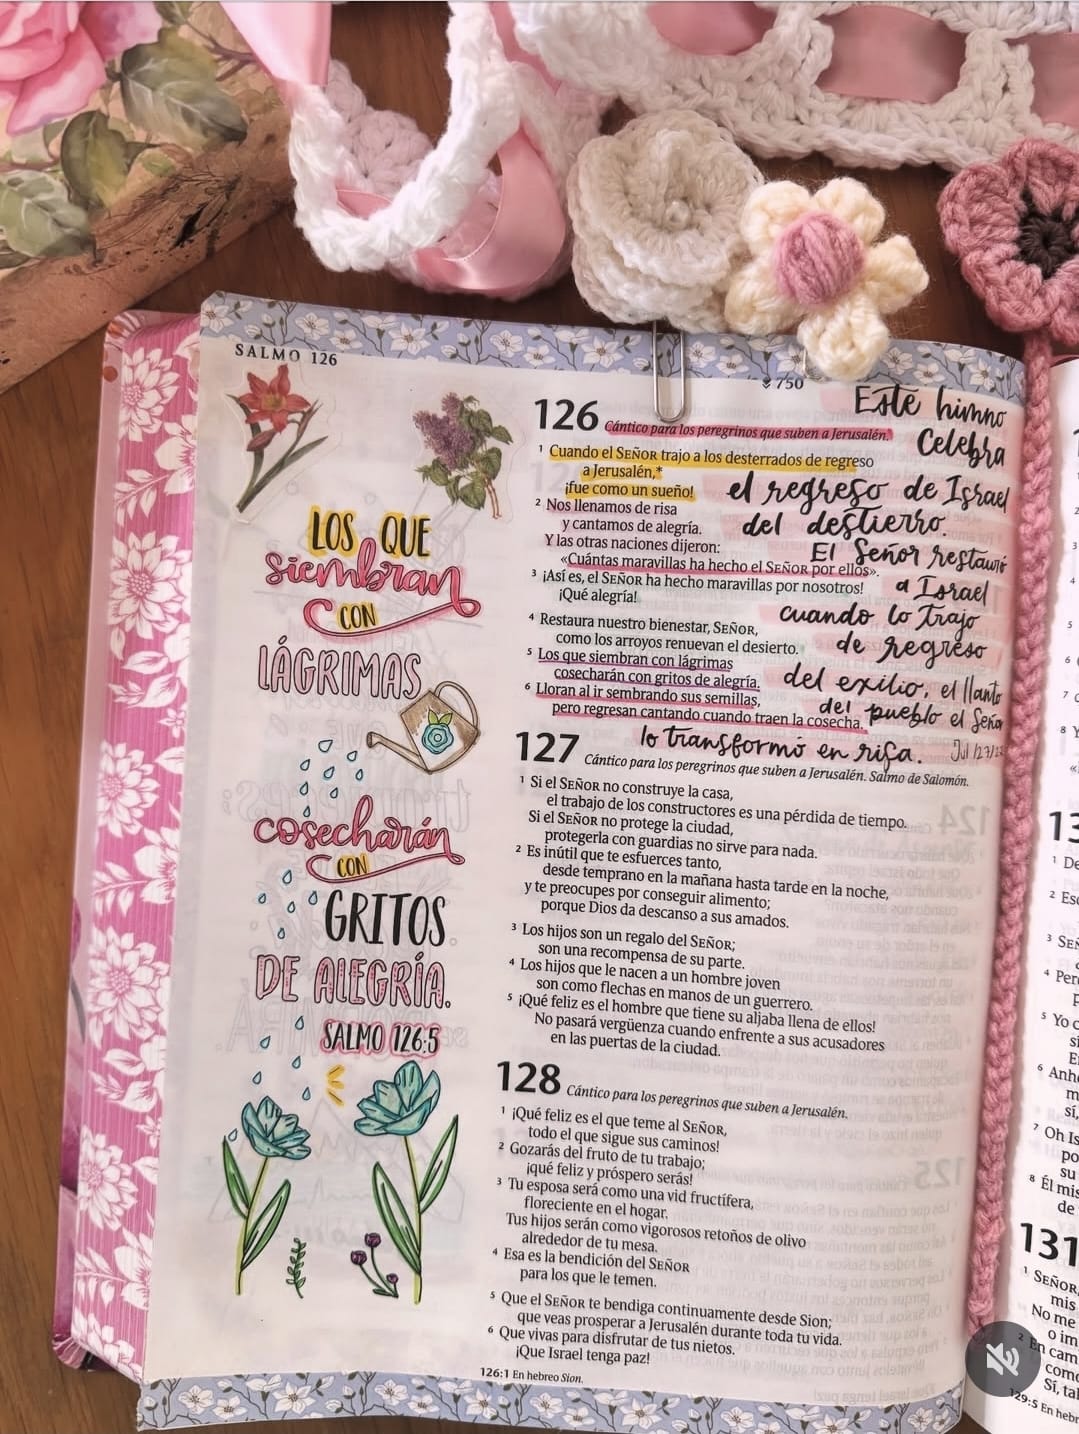 SALMO 126
750
LOS QUE
siembran
CON
LÁGRIMAS
cosecharán
CON
GRITOS
DE ALEGRÍA.
SALMO 126:5
Este himno
Celebra
el regreso de Israel
del destierro.
El Señor restauró
a Israel
cuando lo trajo
de regreso
del exilio, el llanto
del pueblo el Señor
lo transformó en risa.
126 Cántico para los peregrinos que suben a Jerusalén.
1 Cuando el SEÑOR trajo a los desterrados de regreso
a Jerusalén,*
¡fue como un sueño!
2 Nos llenamos de risa
y cantamos de alegría.
Y las otras naciones dijeron:
«Cuántas maravillas ha hecho el SEÑOR por ellos».
3 ¡Así es, el SEÑOR ha hecho maravillas por nosotros!
¡Qué alegría!
4 Restaura nuestro bienestar, SEÑOR,
como los arroyos renuevan el desierto.
5 Los que siembran con lágrimas
cosecharán con gritos de alegría.
6 Lloran al ir sembrando sus semillas,
pero regresan cantando cuando traen la cosecha.
127 Cántico para los peregrinos que suben a Jerusalén. Salmo de Salomón.
1 Si el SEÑOR no construye la casa,
el trabajo de los constructores es una pérdida de tiempo.
Si el SEÑOR no protege la ciudad,
protegerla con guardias no sirve para nada.
2 Es inútil que te esfuerces tanto,
desde temprano en la mañana hasta tarde en la noche,
y te preocupes por conseguir alimento;
porque Dios da descanso a sus amados.
3 Los hijos son un regalo del SEÑOR;
son una recompensa de su parte.
4 Los hijos que le nacen a un hombre joven
son como flechas en manos de un guerrero.
5 ¡Qué feliz es el hombre que tiene su aljaba llena de ellos!
No pasará vergüenza cuando enfrente a sus acusadores
en las puertas de la ciudad.
128 Cántico para los peregrinos que suben a Jerusalén.
1 ¡Qué feliz es el que teme al SEÑOR,
todo el que sigue sus caminos!
2 Gozarás del fruto de tu trabajo;
¡qué feliz y próspero serás!
3 Tu esposa será como una vid fructífera,
floreciente en el hogar.
Tus hijos serán como vigorosos retoños de olivo
alrededor de tu mesa.
4 Esa es la bendición del SEÑOR
para los que le temen.
5 Que el SEÑOR te bendiga continuamente desde Sion;
que veas prosperar a Jerusalén durante toda tu vida.
6 Que vivas para disfrutar de tus nietos.
¡Que Israel tenga paz!
126:1 En hebreo Sion.
131
1 SEÑOR,
mis
No me
o im
2 En cam
como
Sí, tal
129:5 En hebr